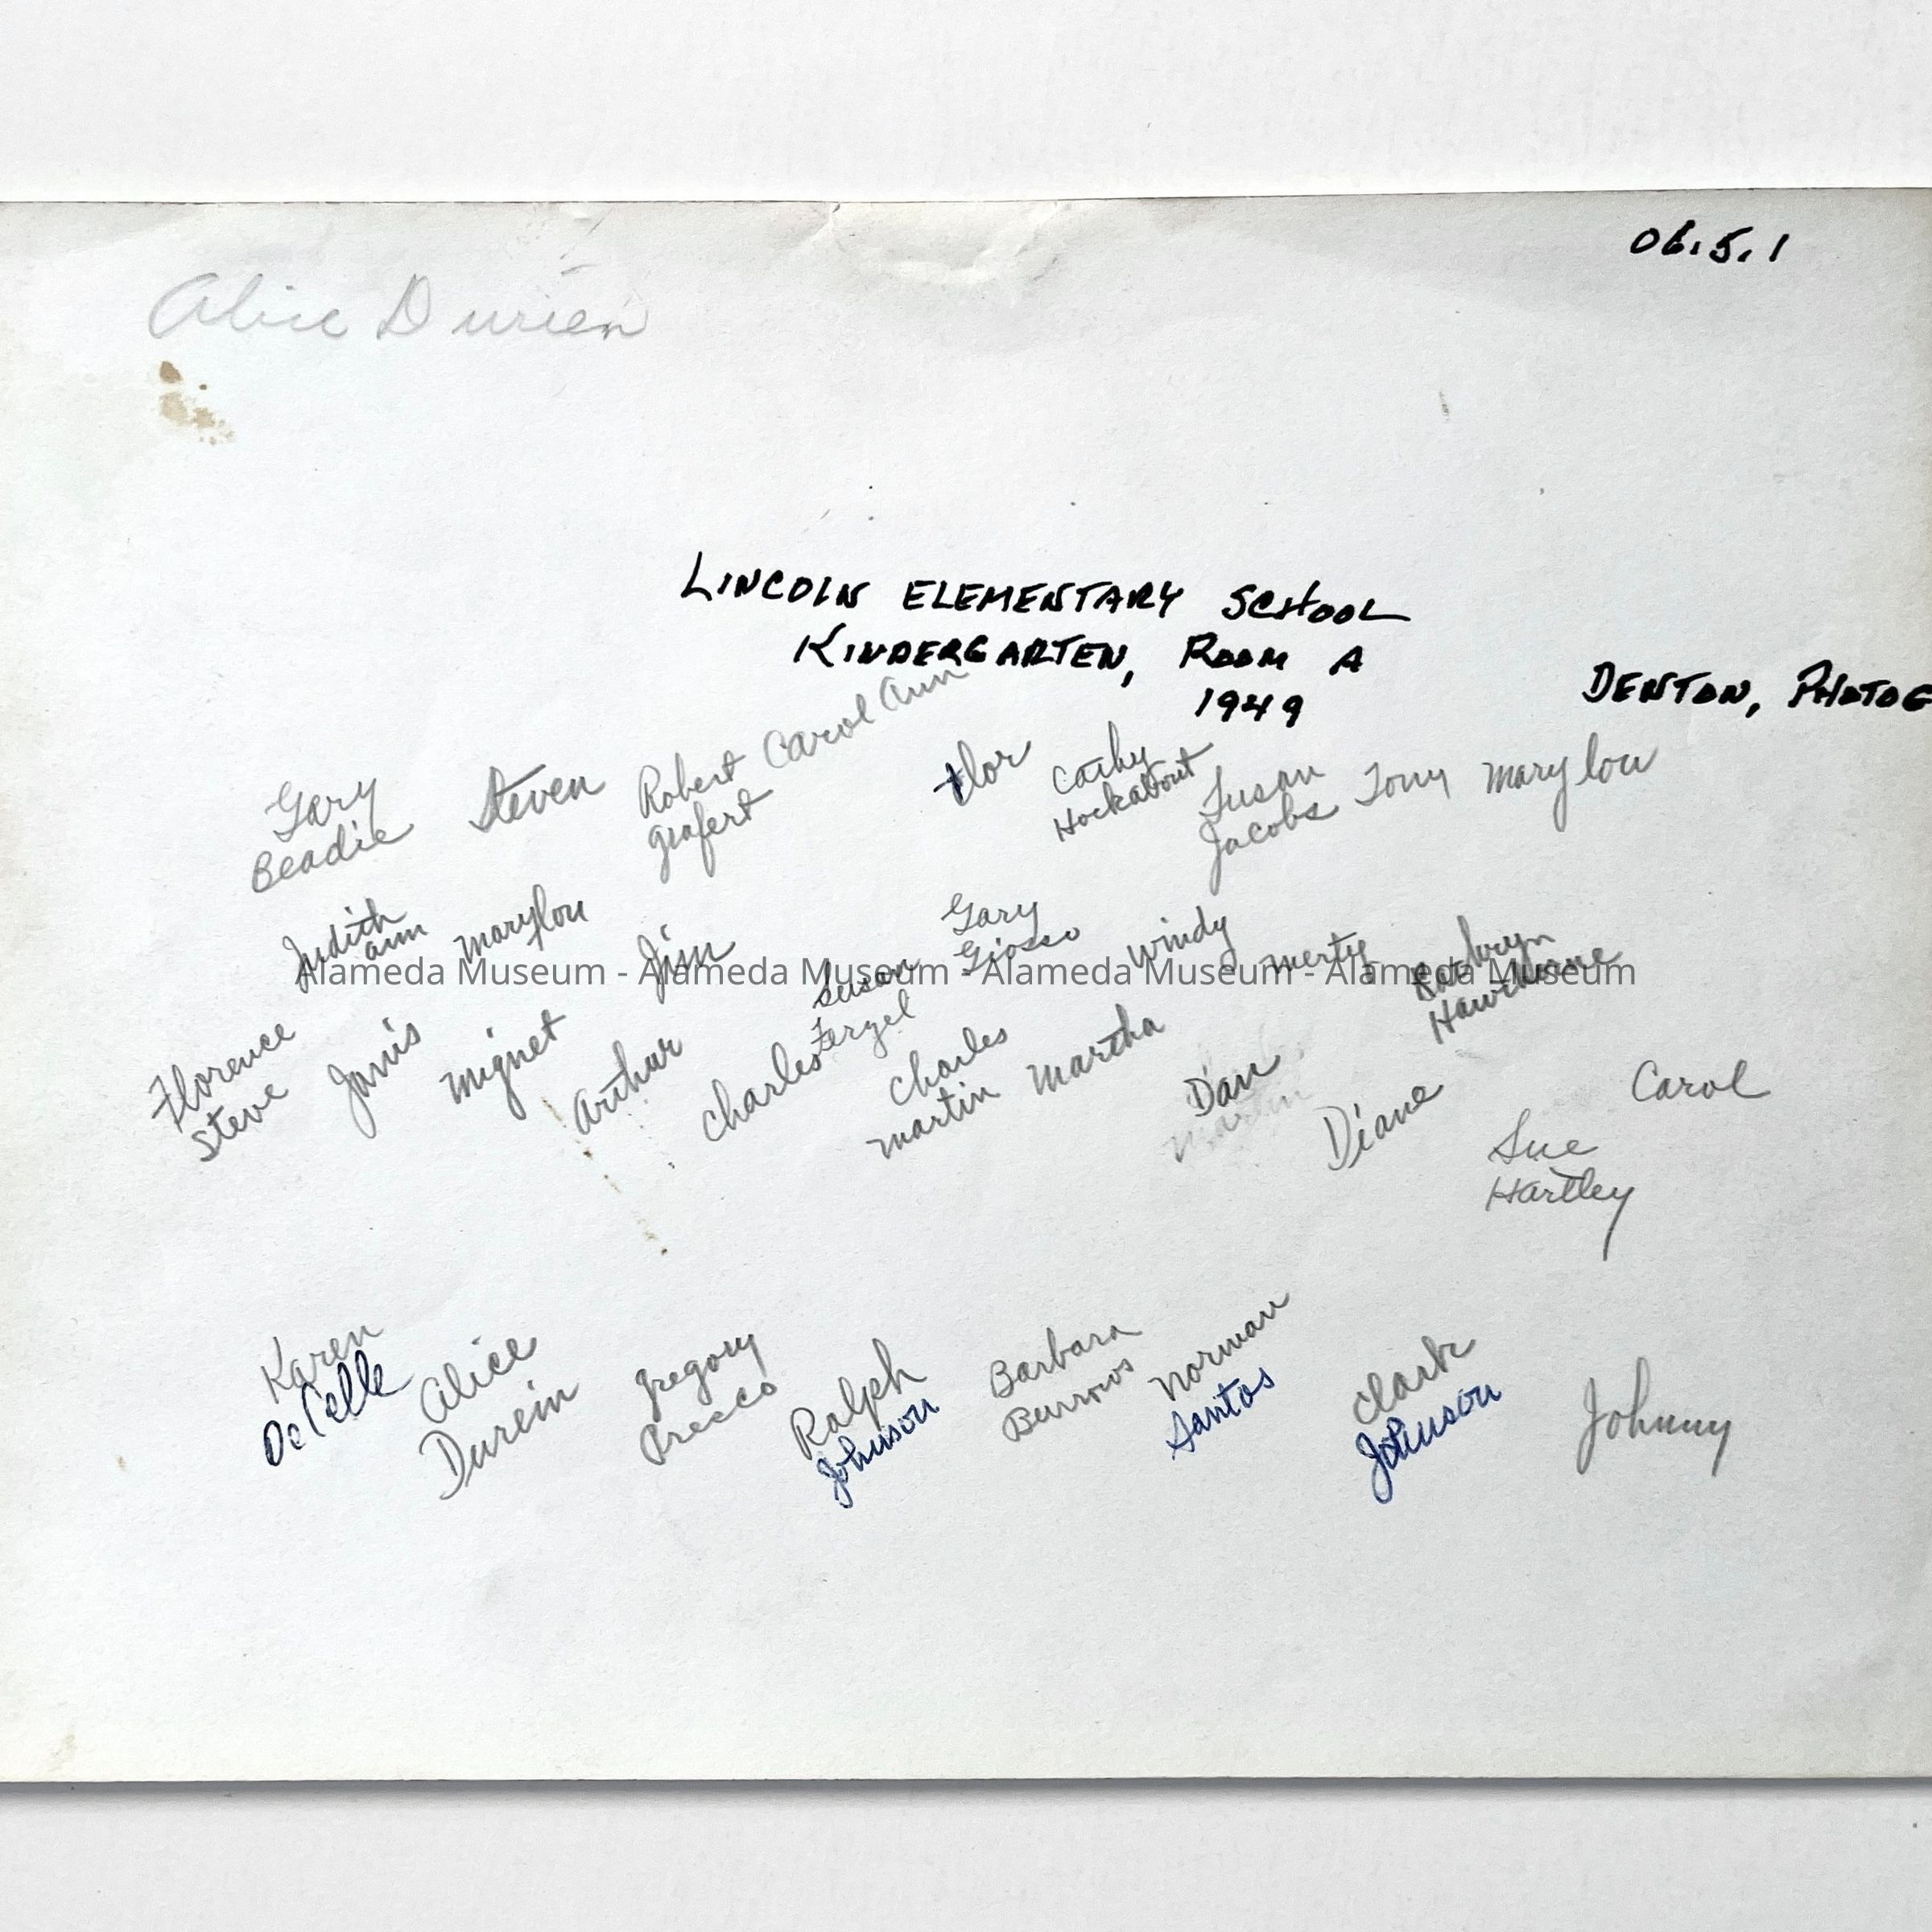 06.5.1
Alice Durien
LINCOLN ELEMENTARY SCHOOL
KINDERGARTEN, ROOM A
1949
DENTON, PHOTOG
Gary Steven Robert Carol Ann Flor Cathy Susan Tony Marylou
Beadie Grafert Hockabout Jacobs
Judith Marylou Jim Susan Gary Windy Merty Kathryn
ann Fergel Giosso Hawthorne
Alameda Museum - Alameda Museum - Alameda Museum - Alameda Museum
Florence Janis Mignet Arthur Charles Charles Martha Dan Diane Sue Carol
Steve Martin Martin Hartley
Karen Alice Gregory Ralph Barbara Norman Clark Johnny
DeCelle Durein Presco Johnson Burrows Santos Johnson